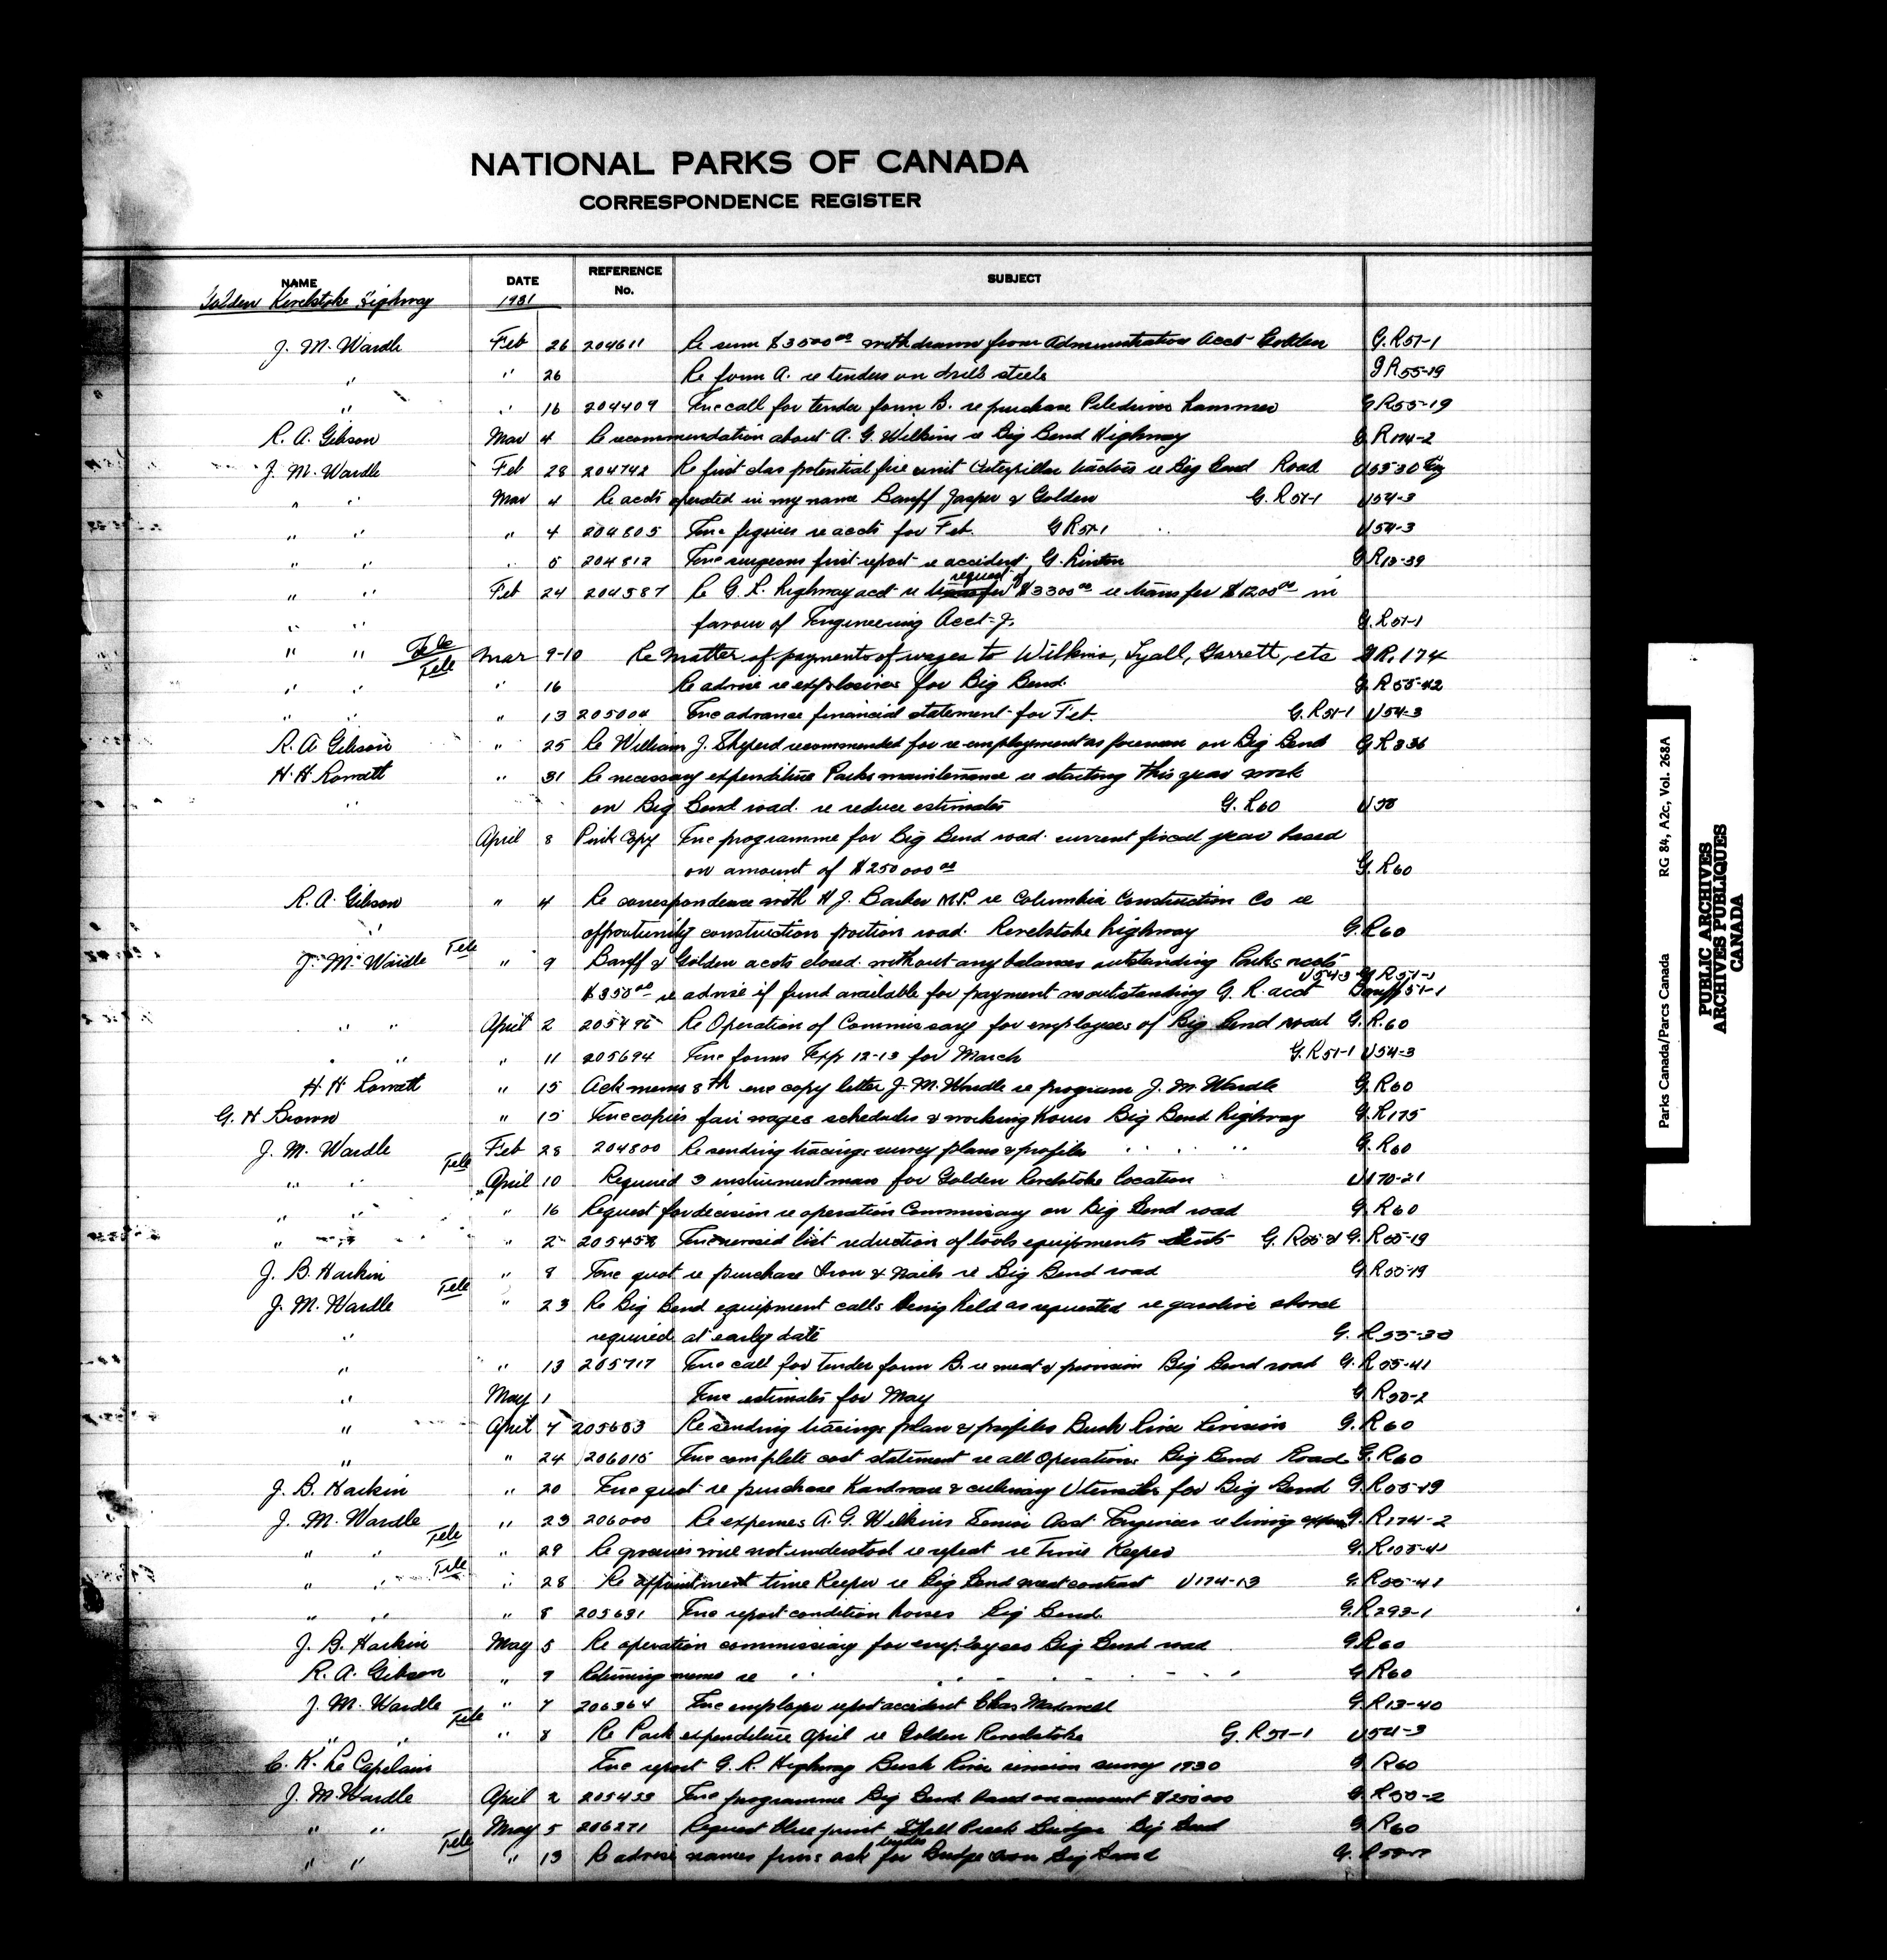 NATIONAL PARKS OF CANADA
CORRESPONDENCE REGISTER
NAME DATE REFERENCE No. SUBJECT
Golden Revelstoke Highway 1931
J. M. Wardle Feb 26 204611 Re sum $3500 00 withdrawn from Administration Acct Golden G.R51-1
" " 26 Re form A. re tenders on drill steels G R55-19
" " 16 204409 Enc call for tender form B. re purchase Piledriver hammer G R55-19
R. A. Gibson Mar 4 Re recommendation about A. G. Wilkins re Big Bend Highway G.R174-2
J. M. Wardle Feb 28 204742 Re first clas potential fire unit Caterpillar tractors re Big Bend Road U63-30
" " Mar 4 Re accts operated in my name Banff Jasper & Golden G.R51-1 U54-3
" " " 4 204805 Enc figures re accts for Feb. G R51-1 U54-3
" " " 5 204812 Enc surgeons first report re accident, G. Linton G R13-39
" " Feb 24 204587 Re G. R. highway acct re request of $3300 00 re transfer $1200 00 in
" " favour of Engineering Acct-J. G.R51-1
" " Tele Tele Mar 9-10 Re Matter of payments of wages to Wilkins, Lyall, Garrett, etc G R.174
" " " 16 Re advise re explosives for Big Bend. G.R55-42
" " " 13 205004 Enc advance financial statement for Feb. G.R51-1 U54-3
R. A Gibson " 25 Re William J. Sheperd recommended for re-employment as foreman on Big Bend G R336
H. H Rowatt " 31 Re necessary expenditure Parks maintenance re starting this year work
" on Big Bend road. re reduce estimates G.R60 U38
April 8 Pink Copy Enc programme for Big Bend road. current fiscal year based
on amount of $250 000 00 G.R60
R. A. Gibson " 4 Re correspondence with H J. Barber M.P. re Columbia Construction Co re
" opportunity construction portion road. Revelstoke highway G.R60
J. M. Wardle Tele " 9 Banff & Golden accts closed. without any balances outstanding Parks accts U54-3 G R51-1
$350 00 re advise if fund available for payment no outstanding G. R. acct Banff 51-1
" " April 2 205496 Re Operation of Commissary for employees of Big Bend road G.R.60
" " " 11 205694 Enc forms Exp 12-13 for March G.R51-1 U54-3
H. H Rowatt " 15 Ack memo 8th enc copy letter J. M. Wardle re program J. M. Wardle G.R60
G. H Brown " 15 Enc copies fair wages schedules & working hours Big Bend highway G.R175
J. M. Wardle Feb 28 204800 Re sending tracings survey plans & profiles " " " " G.R60
" " Tele "April 10 Required 3 instrumentman for Golden Revelstoke location U170-21
" " " 16 Request for decision re operation Commissary on Big Bend road G.R60
" " " 2 205452 Enc revised list reduction of tools equipments tents G.R55 & G.R55-19
J. B. Harkin " 8 Enc quot re purchase Iron & Nails re Big Bend road G.R55-19
J. M. Wardle Tele " 23 Re Big Bend equipment calls being held as requested re gasoline shovel
" required at early date G. R55-30
" " 13 205717 Enc call for tender form B. re meat & provision Big Bend road G.R55-41
" May 1 Enc estimates for May G.R50-2
" April 7 205603 Re sending tracings plan & profiles Bush River Revision G.R60
" " 24 206015 Enc complete cost statement re all Operations Big Bend Road G.R60
J. B. Harkin " 20 Enc quot re purchase Hardware & culinary Utensils for Big Bend G.R55-19
J. M. Wardle " 23 206000 Re expenses A. G. Wilkins Senior Asst Engineer re living expense G.R174-2
" " Tele " 29 Re previous wire not understood re repeat re Time Keeper G.R155-41
" " Tele " 28 Re appointment time Keeper re Big Bend meat contract U174-13 G.R55-41
" " " 8 205631 Enc report condition horses Big Bend G.R293-1
J. B. Harkin May 5 Re operation commissary for employees Big Bend road G.R60
R. A. Gibson " 7 Returning memo re " " " " " " G R60
J. M. Wardle " 7 206364 Enc employer report accident Chas Maxwell G.R13-40
" " Tele " 8 Re Park expenditure April re Golden Revelstoke G.R51-1 U54-3
C. K. Le Capelain Enc report G. R. Highway Bush River revision survey 1930 G R60
J. M. Wardle April 2 205453 Enc programme Big Bend based on amount $250000 G R50-2
" " May 5 206271 Request blue print Bridge Big Bend G R60
" " Tele " 13 Re advise names firms ask tender for Bridge iron Big Bend G.
Parks Canada/Parcs Canada RG 84, A2c, Vol. 268A
PUBLIC ARCHIVES
ARCHIVES PUBLIQUES
CANADA